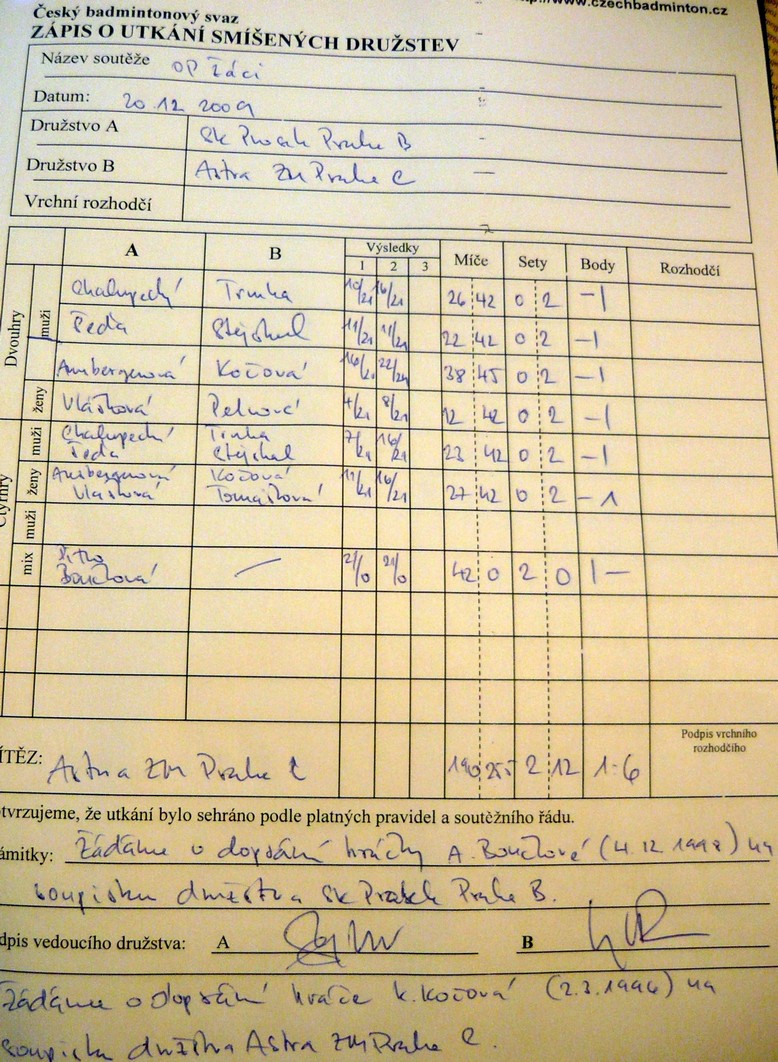 www.czechbadminton.cz
Český badmintonový svaz
ZÁPIS O UTKÁNÍ SMÍŠENÝCH DRUŽSTEV
Název soutěže OP žáci
Datum: 20.12 2009
Družstvo A SK Prosek Praha B
Družstvo B Astra ZM Praha C
Vrchní rozhodčí
A B Výsledky Míče Sety Body Rozhodčí
1 2 3
Dvouhry muži Chalupecký Trnka 10/21 16/21 26 42 0 2 -1
Šeda Stejskal 11/21 11/21 22 42 0 2 -1
Amsbergerová Kočová 16/21 22/24 38 45 0 2 -1
ženy Vlásková 4/21 8/21 12 42 0 2 -1
muži Chalupecký Trnka 7/21 16/21 23 42 0 2 -1
Šeda Stejskal
ženy Amsbergerová Kočová 11/21 16/21 27 42 0 2 -1
Vlásková Tomášková
muži
mix 21/0 21/0 42 0 2 0 1-
Boučková
Podpis vrchního
rozhodčího
ÍTĚZ: Astra ZM Praha C 190 255 2 12 1-6
otvrzujeme, že utkání bylo sehráno podle platných pravidel a soutěžního řádu.
ámitky: Žádáme o dopsání hráčky A. (4.12 1998) na
soupisku družstva SK Prosek Praha B.
dpis vedoucího družstva: A B
Žádáme o dopsání hráče K. Kočová (2.3.1996) na
soupisku družstva Astra ZM Praha C.